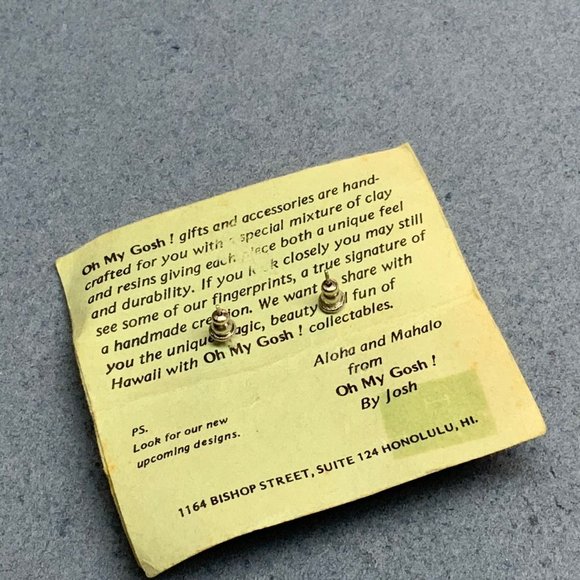 Oh My Gosh ! gifts and accessories are hand-
crafted for you with special mixture of clay
and resins giving each piece both a unique feel
and durability. If you look closely you may still
see some of our fingerprints, a true signature of
a handmade creation. We want to share with
you the unique magic, beauty fun of
Hawaii with Oh My Gosh ! collectables.
Aloha and Mahalo
from
Oh My Gosh !
By Josh
PS.
Look for our new
upcoming designs.
1164 BISHOP STREET, SUITE 124 HONOLULU, HI.